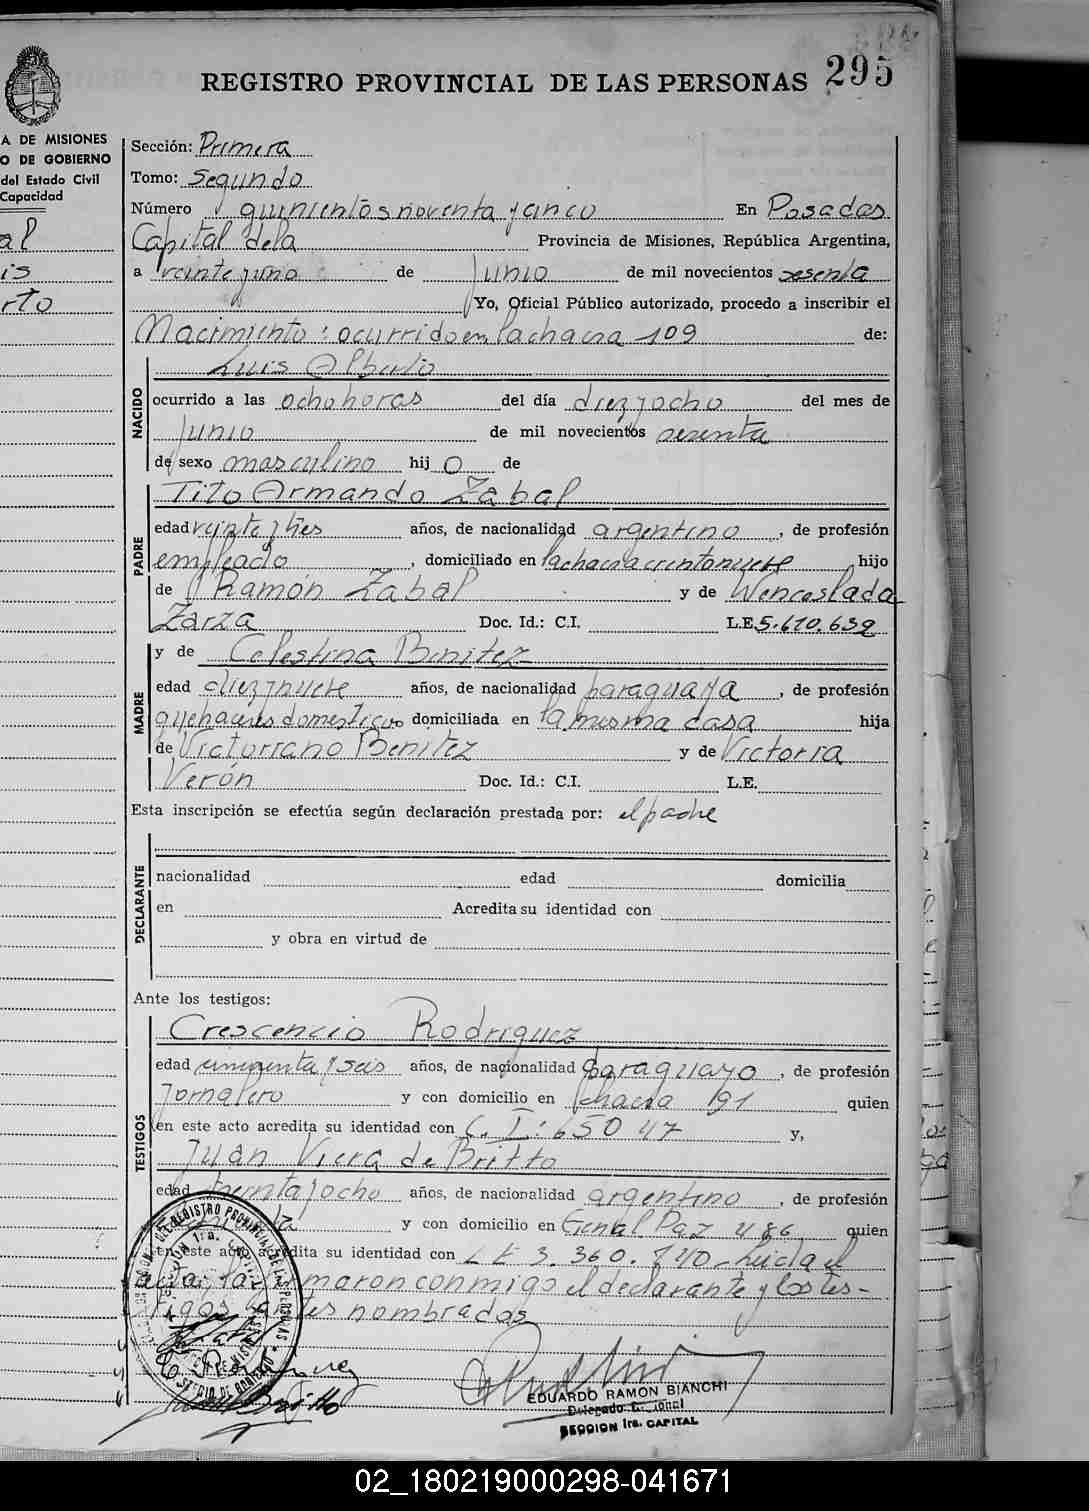 295
REGISTRO PROVINCIAL DE LAS PERSONAS
A DE MISIONES
O DE GOBIERNO
del Estado Civil
Capacidad
al
is
rto
Sección: Primera
Tomo: Segundo
Número quinientos noventa y cinco En Posadas
Capital de la Provincia de Misiones, República Argentina,
a veinte y uno de Junio de mil novecientos sesenta
Yo, Oficial Público autorizado, procedo a inscribir el
Nacimiento: ocurrido en la chacra 109 de:
Luis Alberto
NACIDO
ocurrido a las ocho horas del día diez y ocho del mes de
Junio de mil novecientos sesenta
de sexo masculino hijo de
Tito Armando Zabal
PADRE
edad veinte y tres años, de nacionalidad argentino, de profesión
empleado, domiciliado en la chacra ciento nueve hijo
de Ramón Zabal y de Wenceslada
Zarza Doc. Id.: C.I. L.E. 5.610.639
y de Celestina Benitez
MADRE
edad diez y nueve años, de nacionalidad paraguaya, de profesión
quehaceres domesticos domiciliada en la misma casa hija
de Victoriano Benitez y de Victoria
Verón Doc. Id.: C.I. L.E.
Esta inscripción se efectúa según declaración prestada por: el padre
DECLARANTE
nacionalidad edad domicilia
en Acredita su identidad con
y obra en virtud de
Ante los testigos:
Crescencio Rodriguez
TESTIGOS
edad cincuenta y seis años, de nacionalidad paraguayo, de profesión
Jornalero y con domicilio en chacra 191 quien
en este acto acredita su identidad con C. I: 650 47 y,
Juan Viera de Britto
edad treinta y ocho años, de nacionalidad argentino, de profesión
y con domicilio en Gral Paz 486 quien
en este acto acredita su identidad con L E 3.360.740 Leida el
acta la firmaron conmigo el declarante y los tes-
tigos antes nombrados
EDUARDO RAMON BIANCHI
Delegado
SECCION 1ra. CAPITAL
02_180219000298-041671